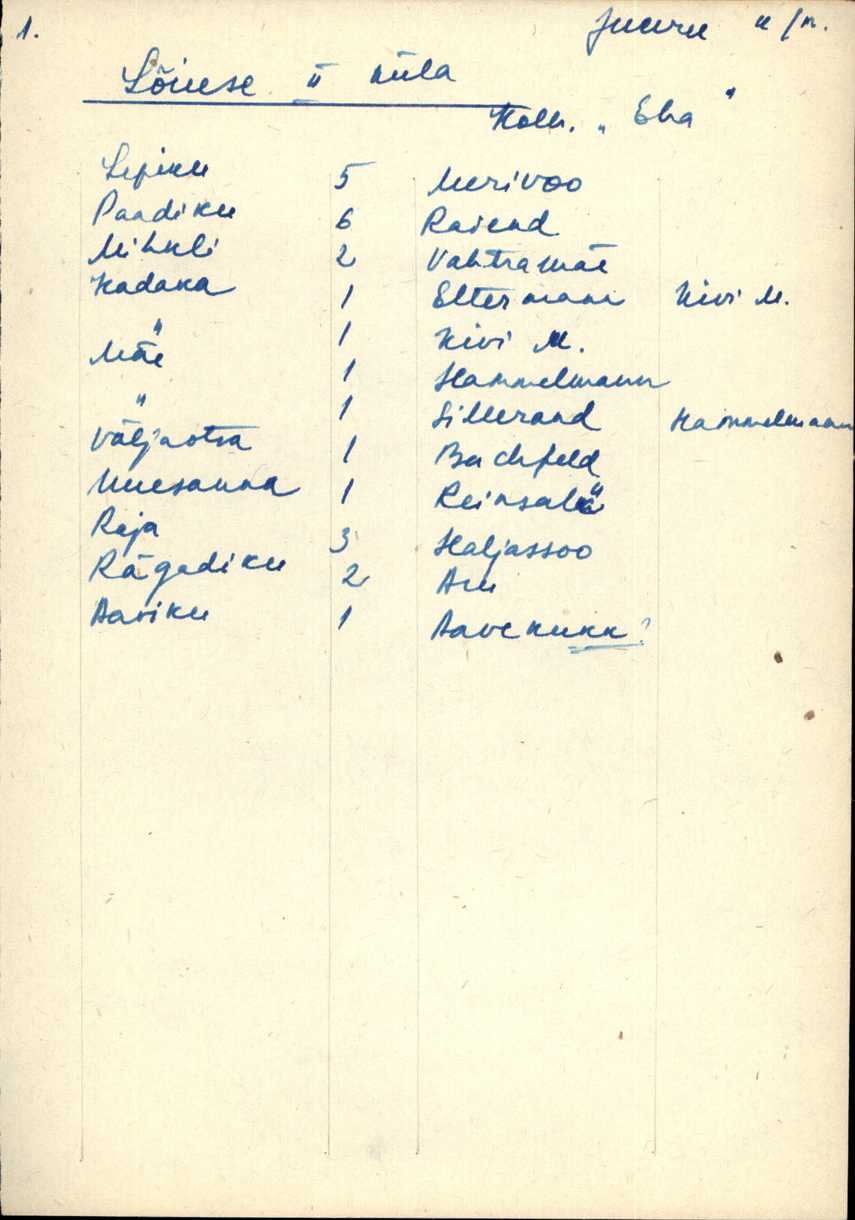 1. Juuru k/n.
Lõiuse II küla
Kolh. „Eha"
Lepiku 5 Merivoo
Paadiku 6 Raiend
Mihkli 2 Vahtramäe
Kadaka 1 Eltermann Kivi M.
" 1 Kivi M.
Mäe 1 Hammelmann
" 1 Sillerand Hammelmann
Väljaotsa 1 Buchfeld
Uuesauna 1 Reinsalu
Raja 3 Haljassoo
Rägadiku 2 Aru
Aaviku 1 Aavekukk?